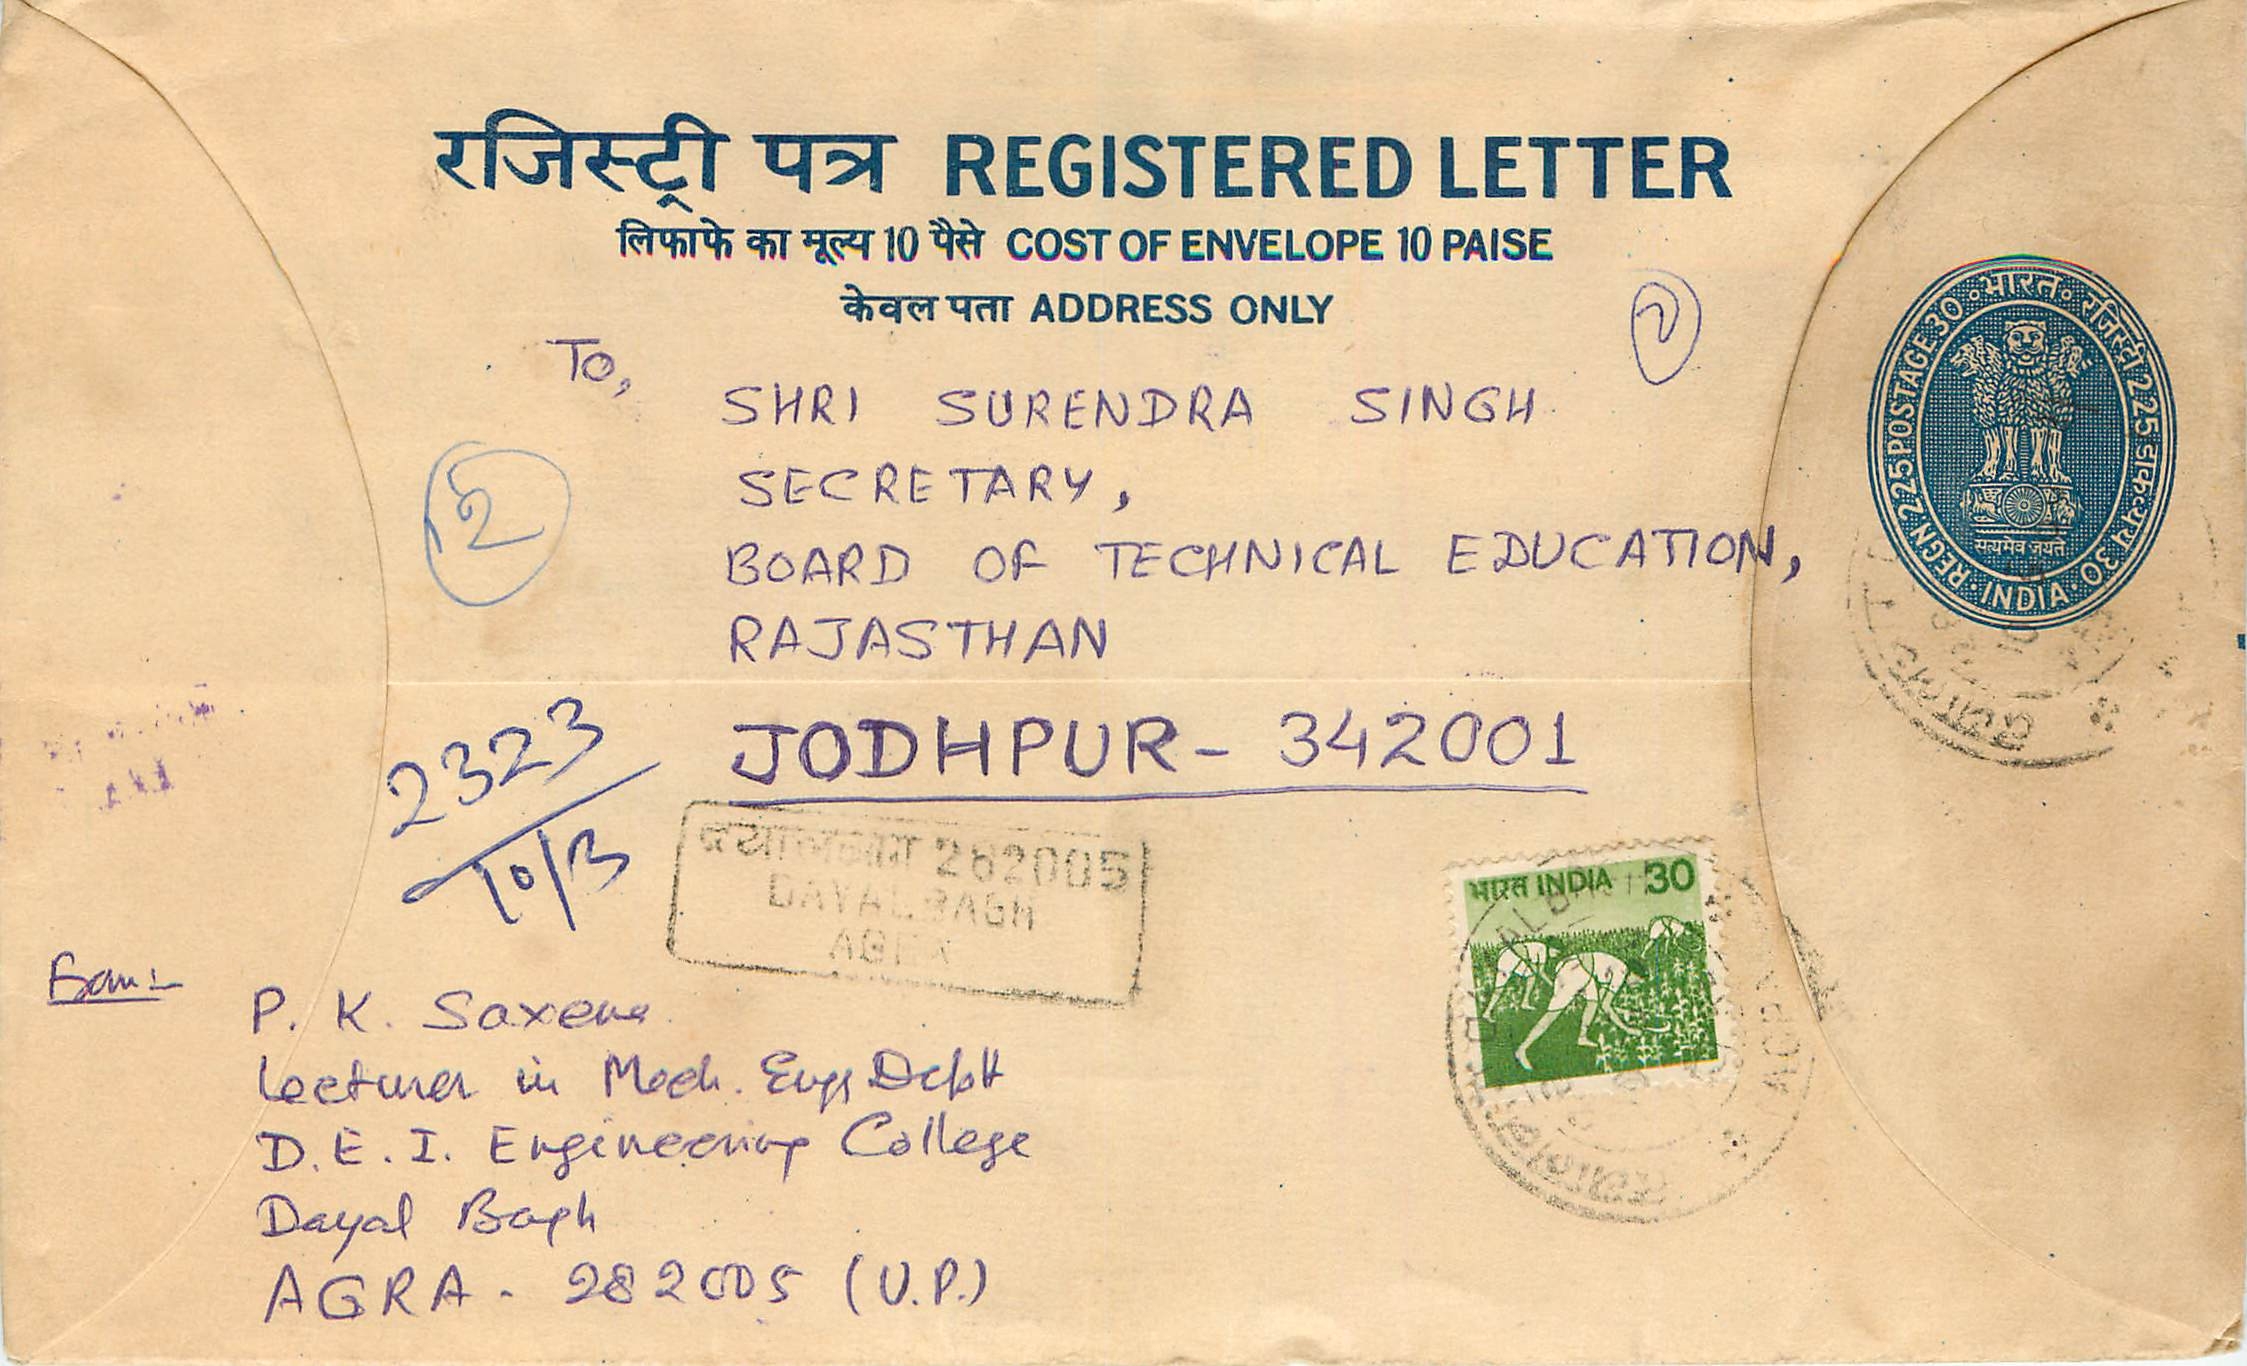 रजिस्ट्री पत्र REGISTERED LETTER
लिफाफे का मूल्य 10 पैसे COST OF ENVELOPE 10 PAISE
केवल पता ADDRESS ONLY
भारत रजिस्ट्री 225 डाक व्यय 30 INDIA REGN. 225 POSTAGE 30
सत्यमेव जयते
To,
SHRI SURENDRA SINGH
SECRETARY,
BOARD OF TECHNICAL EDUCATION,
RAJASTHAN
JODHPUR - 342001
2
2323
10/3
282005
DAYALBAGH
AGRA
भारत INDIA 30
AGRA
From:-
P. K. Saxena
Lecturer in Mech. Engg Deptt
D.E.I. Engineering College
Dayal Bagh
AGRA - 282005 (U.P.)